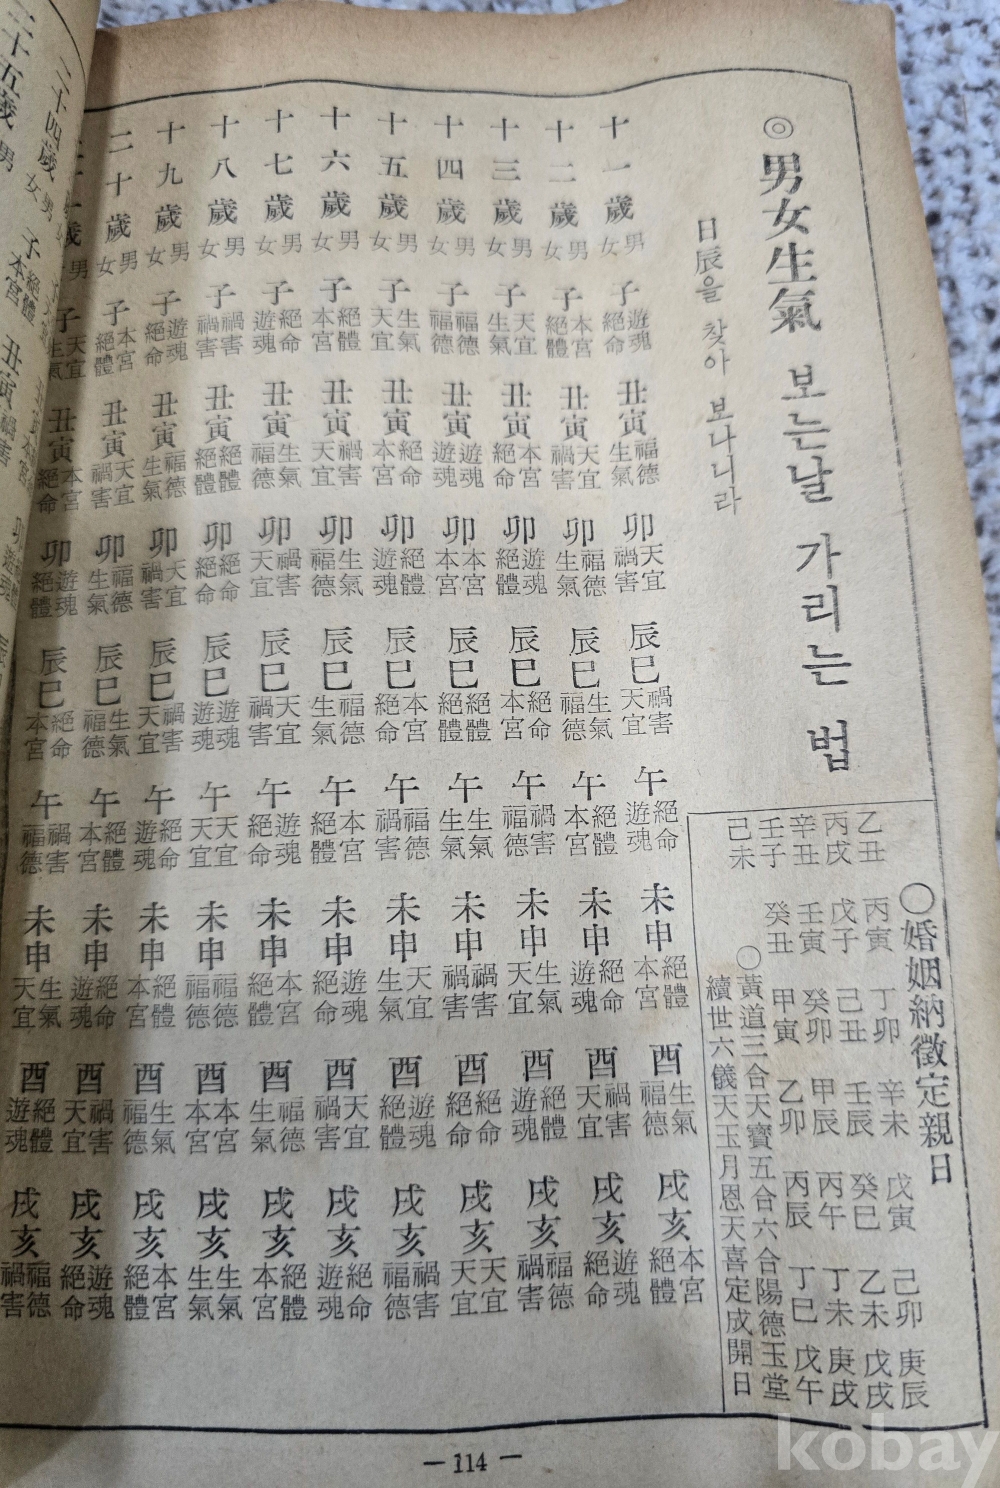 ◎男女生氣 보는날 가리는 법
日辰을 찾아 보나니라
○婚姻納徵定親日
乙丑 丙寅 丁卯 辛未 戊寅 己卯 庚辰
丙戌 戊子 己丑 壬辰 癸巳 乙未 戊戌
辛丑 壬寅 癸卯 甲辰 丙午 丁未 庚戌
壬子 癸丑 甲寅 乙卯 丙辰 丁巳 戊午
己未
○黃道三合天寶五合六合陽德玉堂
續世六儀天玉月恩天喜定成開日
十一歲 男女 子 遊魂 絕命 丑寅 福德 生氣 卯 天宜 禍害 辰巳 禍害 天宜 午 絕命 遊魂 未申 絕體 本宮 酉 生氣 福德 戌亥 本宮 絕體
十二歲 男女 子 本宮 絕體 丑寅 天宜 禍害 卯 福德 生氣 辰巳 生氣 福德 午 絕體 本宮 未申 絕命 遊魂 酉 禍害 天宜 戌亥 遊魂 絕命
十三歲 男女 子 天宜 生氣 丑寅 本宮 絕命 卯 遊魂 絕體 辰巳 絕命 本宮 午 禍害 福德 未申 生氣 天宜 酉 絕體 遊魂 戌亥 福德 禍害
十四歲 男女 子 福德 福德 丑寅 遊魂 遊魂 卯 本宮 本宮 辰巳 絕體 絕體 午 生氣 生氣 未申 禍害 禍害 酉 絕命 絕命 戌亥 天宜 天宜
十五歲 男女 子 生氣 天宜 丑寅 絕命 本宮 卯 絕體 遊魂 辰巳 本宮 絕命 午 福德 禍害 未申 天宜 生氣 酉 遊魂 絕體 戌亥 禍害 福德
十六歲 男女 子 絕體 本宮 丑寅 禍害 天宜 卯 生氣 福德 辰巳 福德 生氣 午 本宮 絕體 未申 遊魂 絕命 酉 天宜 禍害 戌亥 絕命 遊魂
十七歲 男女 子 絕命 遊魂 丑寅 生氣 福德 卯 禍害 天宜 辰巳 天宜 禍害 午 遊魂 絕命 未申 本宮 絕體 酉 福德 生氣 戌亥 絕體 本宮
十八歲 男女 子 禍害 禍害 丑寅 絕體 絕體 卯 絕命 絕命 辰巳 遊魂 遊魂 午 天宜 天宜 未申 福德 福德 酉 本宮 本宮 戌亥 生氣 生氣
十九歲 男女 子 遊魂 絕命 丑寅 福德 生氣 卯 天宜 禍害 辰巳 禍害 天宜 午 絕命 遊魂 未申 絕體 本宮 酉 生氣 福德 戌亥 本宮 絕體
二十歲 男女 子 本宮 絕體 丑寅 天宜 禍害 卯 福德 生氣 辰巳 生氣 福德 午 絕體 本宮 未申 絕命 遊魂 酉 禍害 天宜 戌亥 遊魂 絕命
二十一歲 男女 子 天宜 生氣 丑寅 本宮 絕命 卯 遊魂 絕體 辰巳 絕命 本宮 午 禍害 福德 未申 生氣 天宜 酉 絕體 遊魂 戌亥 福德 禍害
— 114 —
二十四歲 男女 子 絕體 本宮 丑寅 禍害
二十五歲 男
kobay